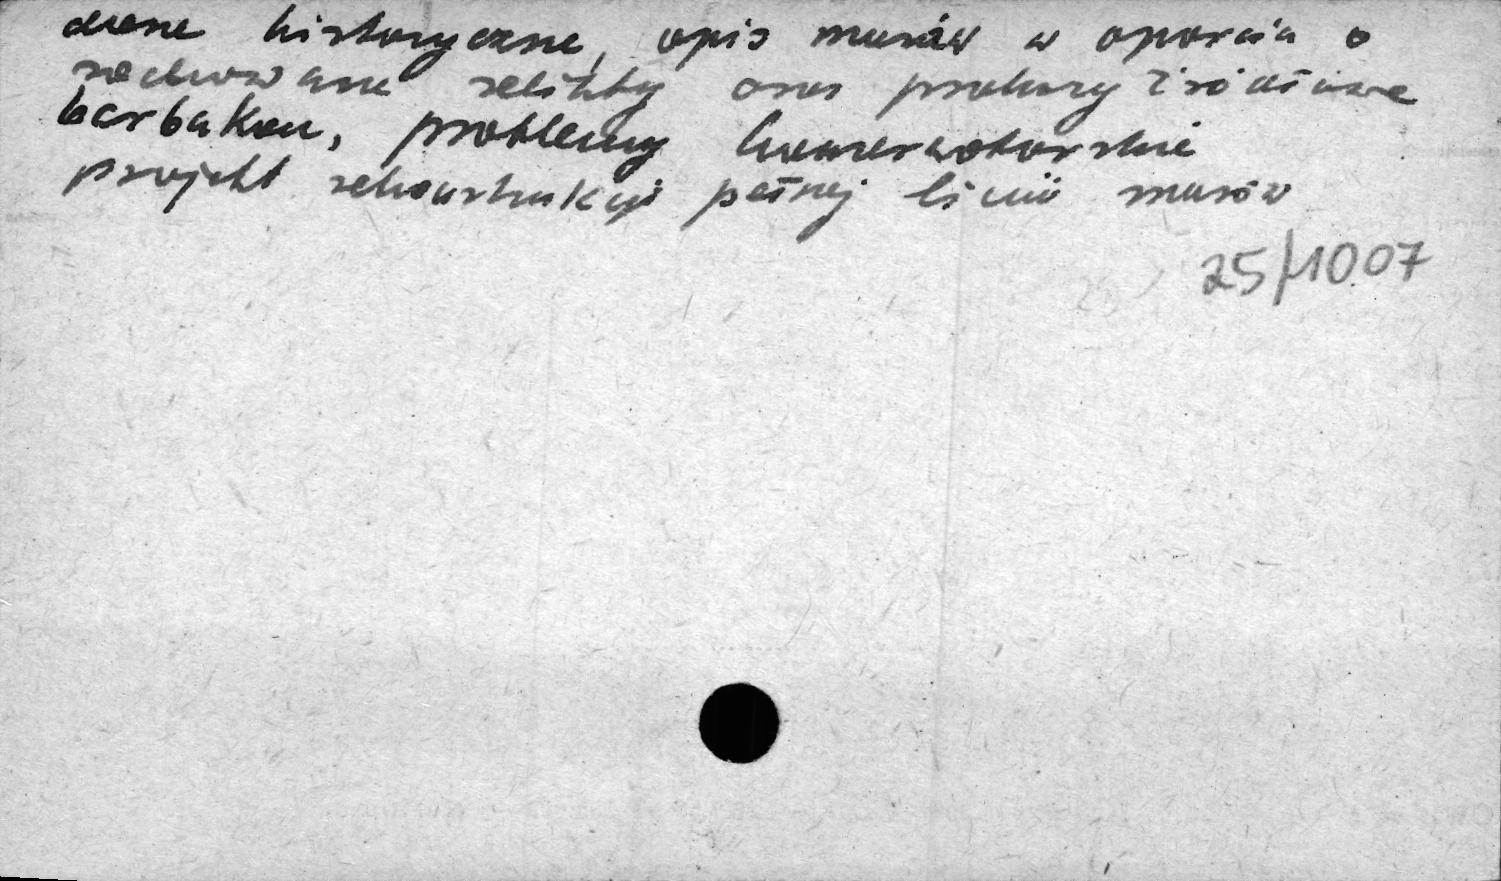 dane historyczne, opis murów w oparciu o
zachowane relikty oraz przekazy źródłowe
barbakan, problemy konserwatorskie
projekt rekonstrukcji pełnej linii murów
25/1007